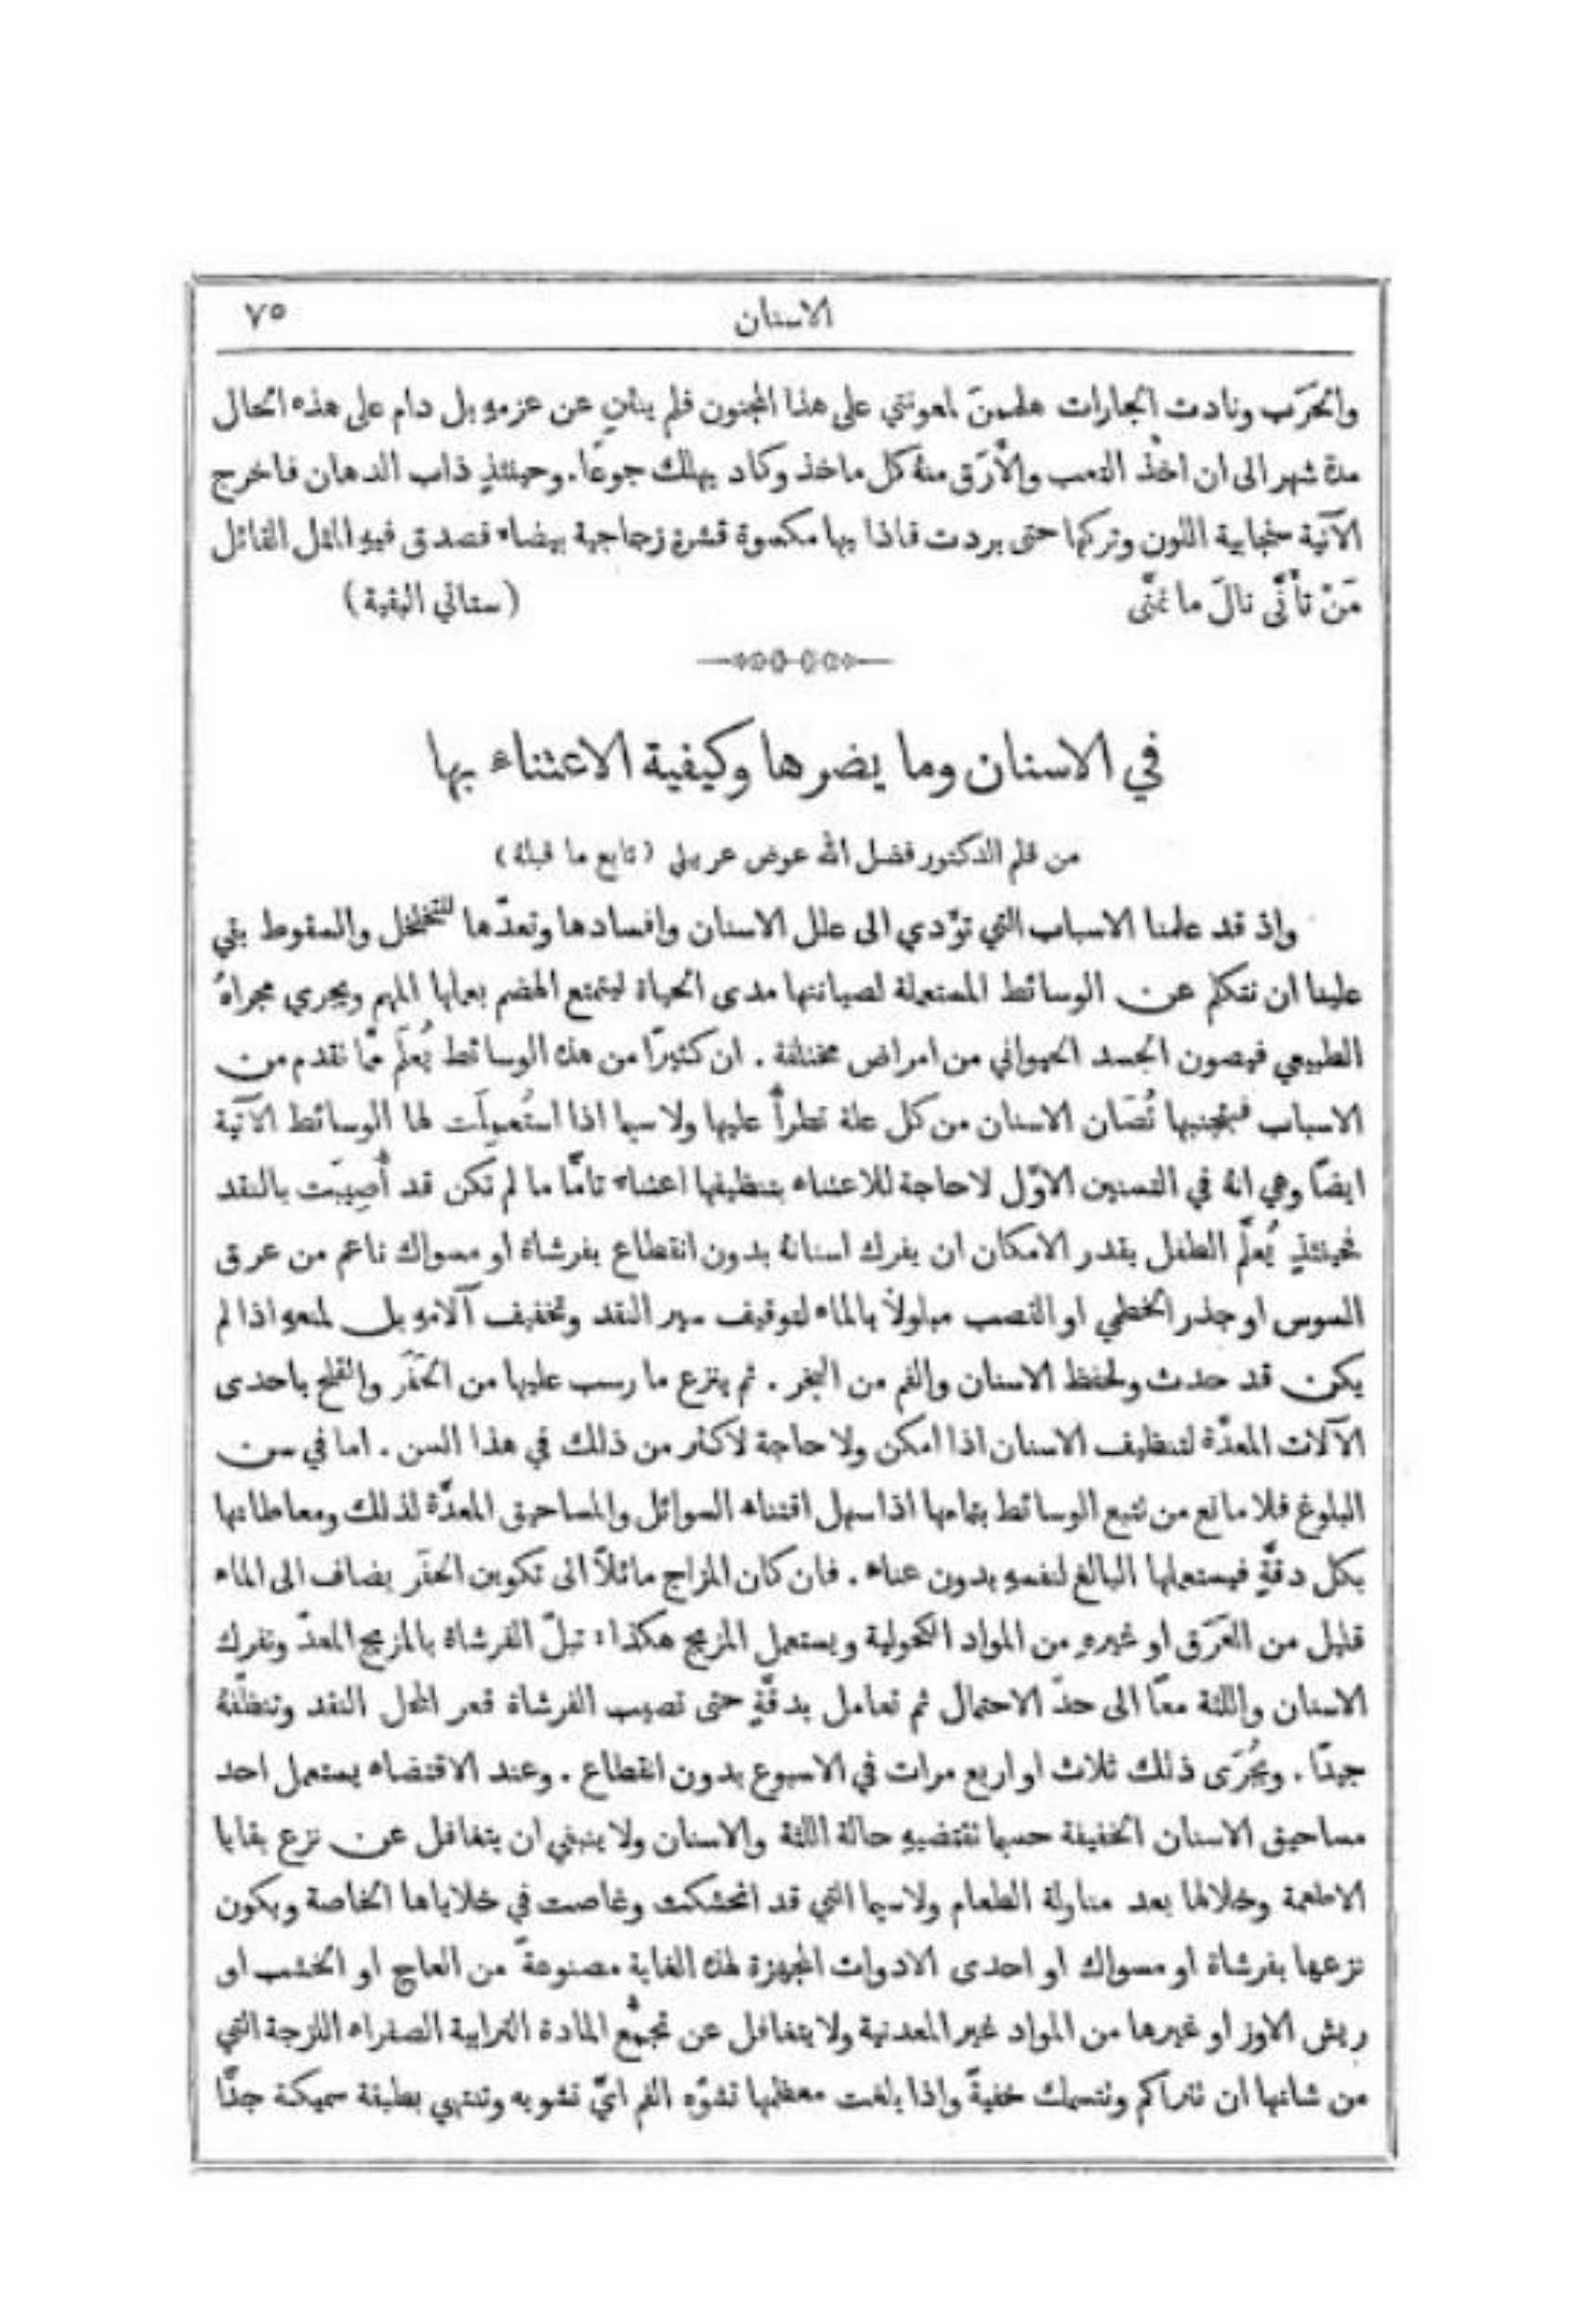 الاسنان ٧٥
والحَرَب ونادت الجارات هلممنَ لمعونتي على هذا المجنون فلم ينثنِ عن عزمهِ بل دام على هذه الحال
مدة شهر الى ان اخذ التعب والأَرَق منهُ كل ماخذ وكاد يهلك جوعًا. وحينئذٍ ذاب الدهان فاخرج
الآنية سنجابية اللون وتركها حتى بردت فاذا بها مكسوة قشرة زجاجية بيضاء فصدق فيهِ المثل القائل
مَنْ تأَنَّى نالَ ما تمنَّى (ستاتي البقية)
في الاسنان وما يضرها وكيفية الاعتناء بها
من قلم الدكتور فضل الله عوض عربيلي (تابع ما قبلهُ)
واذ قد علمنا الاسباب التي توَّدي الى علل الاسنان وافسادها وتعدّها للتخلخل والسقوط بقي
علينا ان نتكلم عن الوسائط المستعملة لصيانتها مدى الحياة ليتمتع الهضم بعملها المهم ويجري مجراهُ
الطبيعي فيصون الجسد الحيواني من امراض مختلفة. ان كثيرًا من هذه الوسائط يُعلَم ممَّا تقدم من
الاسباب فبتجنبها تُصَان الاسنان من كل علة تطرأُ عليها ولا سيما اذا استُعمِلَت لها الوسائط الآتية
ايضًا وهي انهُ في التسنين الاوَّل لا حاجة للاعتناء بتنظيفها اعتناء تامًّا ما لم تكن قد أُصِيبَت بالنقد
فحينئذٍ يُعلَّم الطفل بقدر الامكان ان يفرك اسنانهُ بدون انقطاع بفرشاة او مسواك ناعم من عرق
السوس او جذر الخطمي او القصب مبلولاً بالماء لتوقيف سير النقد وتخفيف آلامهِ بل لمنعهِ اذا لم
يكن قد حدث ولحفظ الاسنان والفم من البخر. ثم ينزع ما رسب عليها من الحَفَر والقلح باحدى
الآلات المعدَّة لتنظيف الاسنان اذا امكن ولا حاجة لاكثر من ذلك في هذا السن. اما في سن
البلوغ فلا مانع من تتبع الوسائط بتمامها اذا سهل اقتناء السوائل والمساحيق المعدَّة لذلك ومعاطاتها
بكل دقَّةٍ فيستعملها البالغ لنفسهِ بدون عناء. فان كان المزاج مائلاً الى تكوين الحفَر يضاف الى الماء
قليل من العَرَق او غيرهِ من المواد الكحولية ويستعمل المزيج هكذا: تبلّ الفرشاة بالمزيج المعدّ وتفرك
الاسنان واللثة معًا الى حدّ الاحتمال ثم تعامل بدقَّةٍ حتى تصيب الفرشاة قعر المحل النقد وتنظّفهُ
جيدًا. ويُجرَى ذلك ثلاث او اربع مرات في الاسبوع بدون انقطاع. وعند الاقتضاء يستعمل احد
مساحيق الاسنان الخفيفة حسبما تقتضيهِ حالة اللثة والاسنان ولا ينبغي ان يتغافل عن نزع بقايا
الاطعمة وخلالها بعد مناولة الطعام ولاسيما التي قد انحشكت وغاصت في خلاياها الخاصة ويكون
نزعها بفرشاة او مسواك او احدى الادوات المجهزة لهذه الغاية مصنوعةً من العاج او الخشب او
ريش الاوز او غيرها من المواد غير المعدنية ولا يتغافل عن تجمُّع المادة الترابية الصفراء اللزجة التي
من شانها ان تتراكم وتتسمك خفيةً واذا بلغت معظمها تشوّه الفم ايَّ تشويه وتنتهي بطبقة سميكة جدًّا